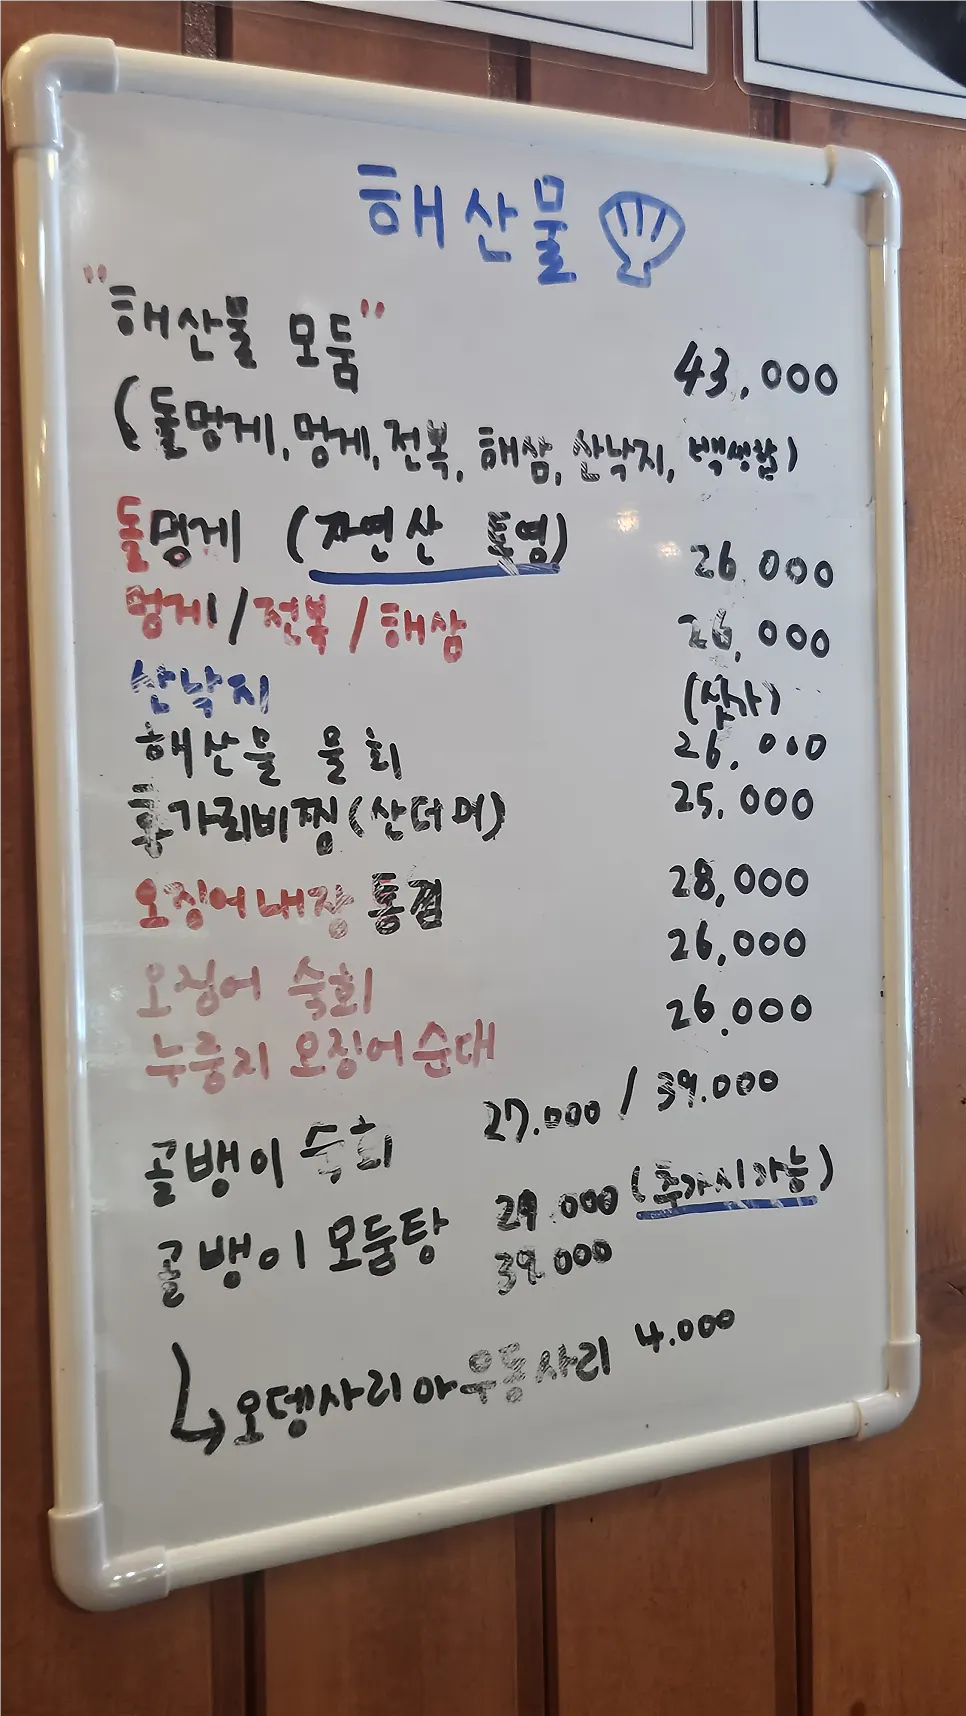 해산물
"해산물 모둠" 43,000
(돌멍게, 멍게, 전복, 해삼, 산낙지, 백생합)
돌멍게 (자연산 통영) 26,000
멍게/전복/해삼 26,000
산낙지 (싯가)
해산물 물회 26,000
홍가리비찜(산더미) 25,000
오징어내장 통찜 28,000
오징어 숙회 26,000
누룽지 오징어순대 26,000
골뱅이 숙회 27,000 / 39,000
골뱅이 모둠탕 29,000 (추가시가능)
39,000
오뎅사리 아 우동사리 4,000